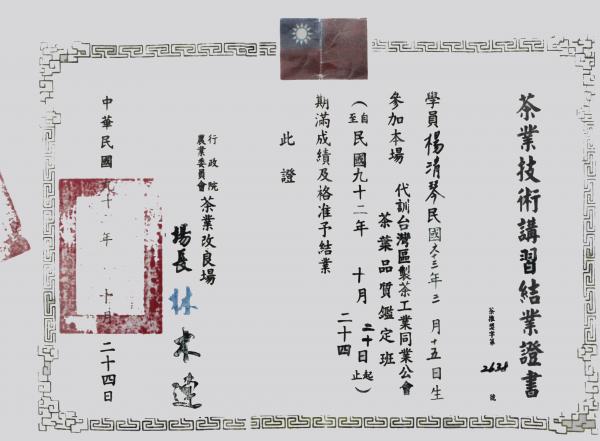 茶業技術講習結業證書
茶推習字第2631號
學員楊涓琴民國六三年二月十五日生
參加本場代訓台灣區製茶工業同業公會
茶葉品質鑑定班
(自民國九十二年十月二十日起
至二十四止)
期滿成績及格准予結業
此證
行政院
農業委員會
茶業改良場
場長林木連
中華民國九十二年十月二十四日